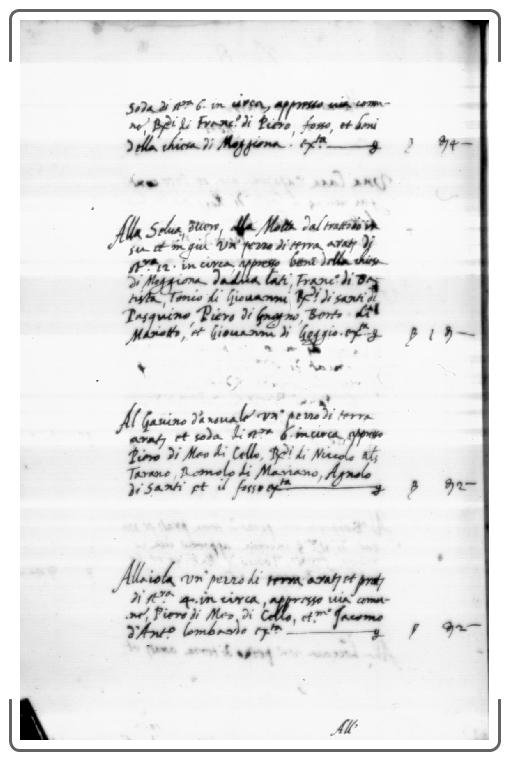 soda di st.ra 6. in circa, appresso via comu-
ne, B.di di Franc.o di Piero, fosso, et beni
della chiesa di Moggiona. ex.ta
Alla Selva, overo, alla Motta dal tratoio in
su et in giu un' pezzo di terra arat.
st.ra 12. in circa appresso beni della chiesa
di Moggiona dadua lati, Franc.o di Ba-
tista, Tonio di Giovanni, B.di di Santi di
Pasquino Piero di Gnogno, Berto di
Mariotto, et Giovanni di Geggio. ex.ta
Al Gavino d'anovale un' pezzo di terra
arat. et soda di st.ra 6. in circa, appresso
Piero di Meo di Cello, B.di di Nicolo als
Tarano, Romolo di Mariano, Agnolo
di Santi et il fosso ex.ta
Allaiola un' pezzo di terra arat. et prat.
di st.ra 4. in circa, appresso via comu-
ne, Piero di Meo, di Cello, et m.o Jacomo
d'Ant.o lombardo ex.ta
All'